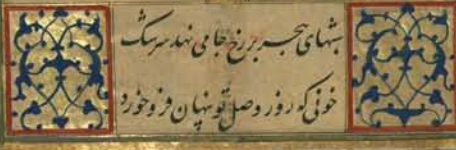 شبهای هجر بر رخ جامی نهد سرشک
خونی که روز وصل تو پنهان فرو خورد